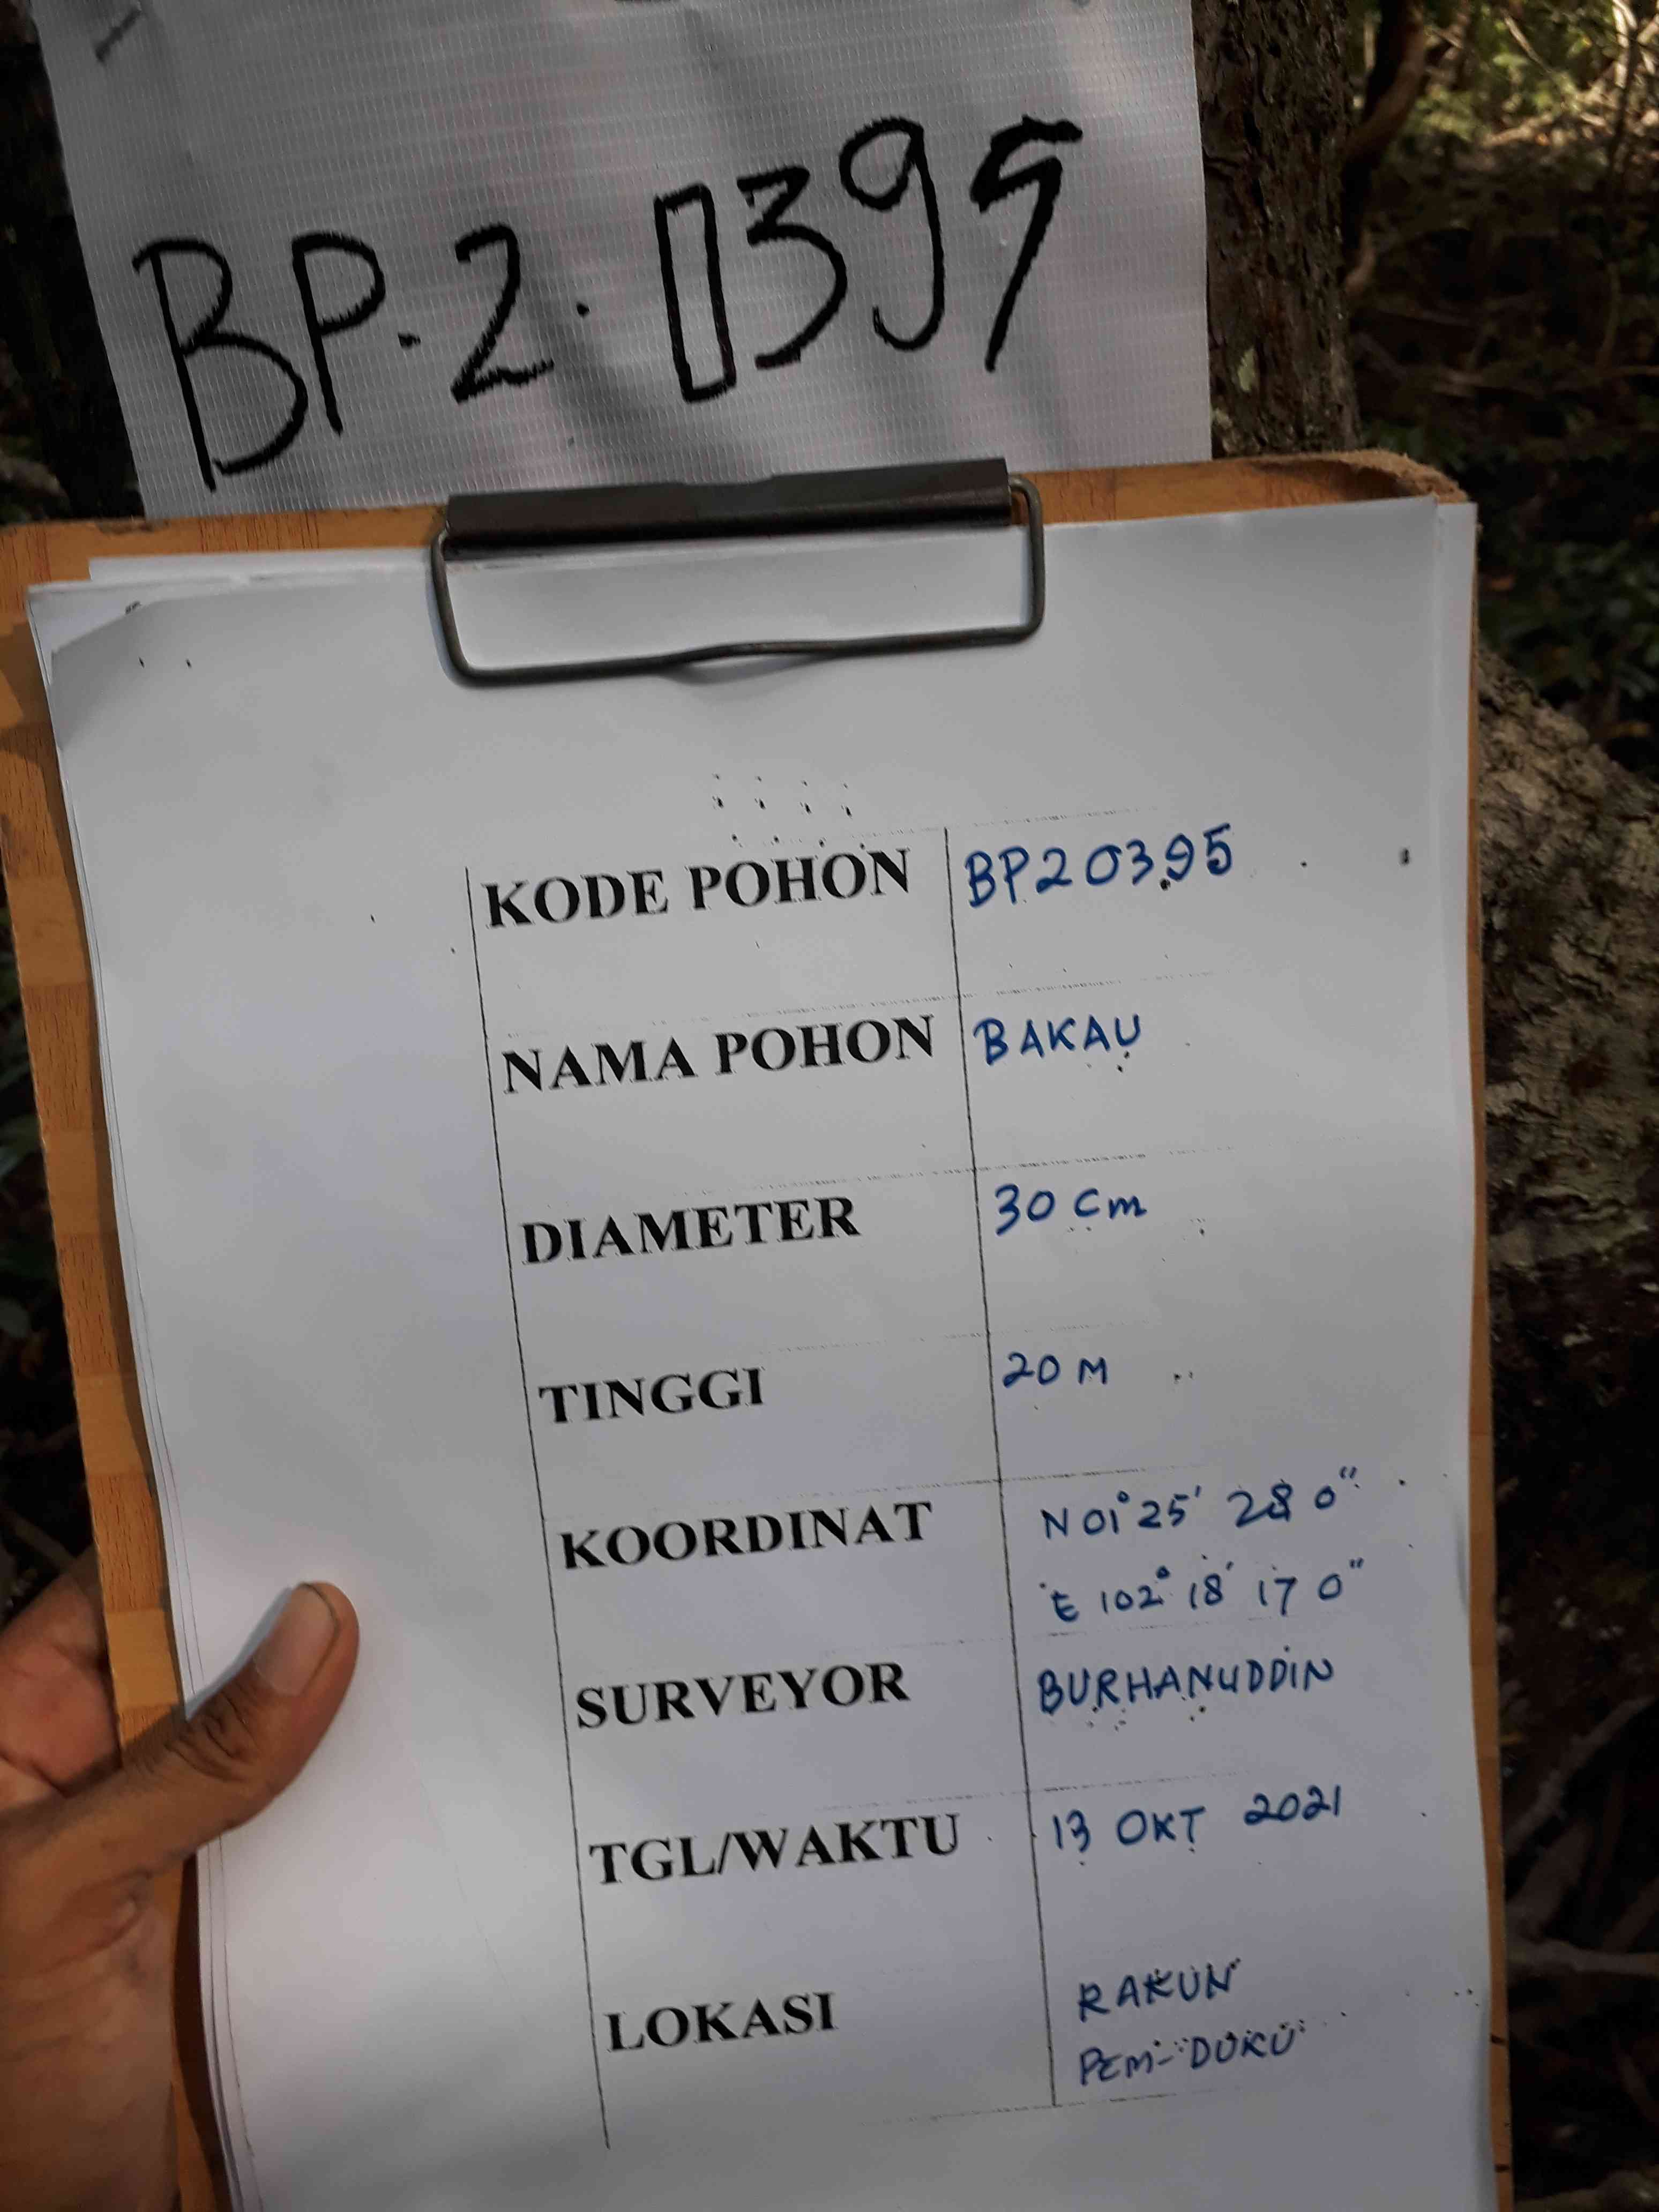 BP.2.0395
KODE POHON BP20395
NAMA POHON BAKAU
DIAMETER 30 Cm
TINGGI 20 M
KOORDINAT N 01° 25' 28 0"
E 102° 18' 17 0"
SURVEYOR BURHANUDDIN
TGL/WAKTU 13 OKT 2021
LOKASI RAKUN
PEM-DUKU